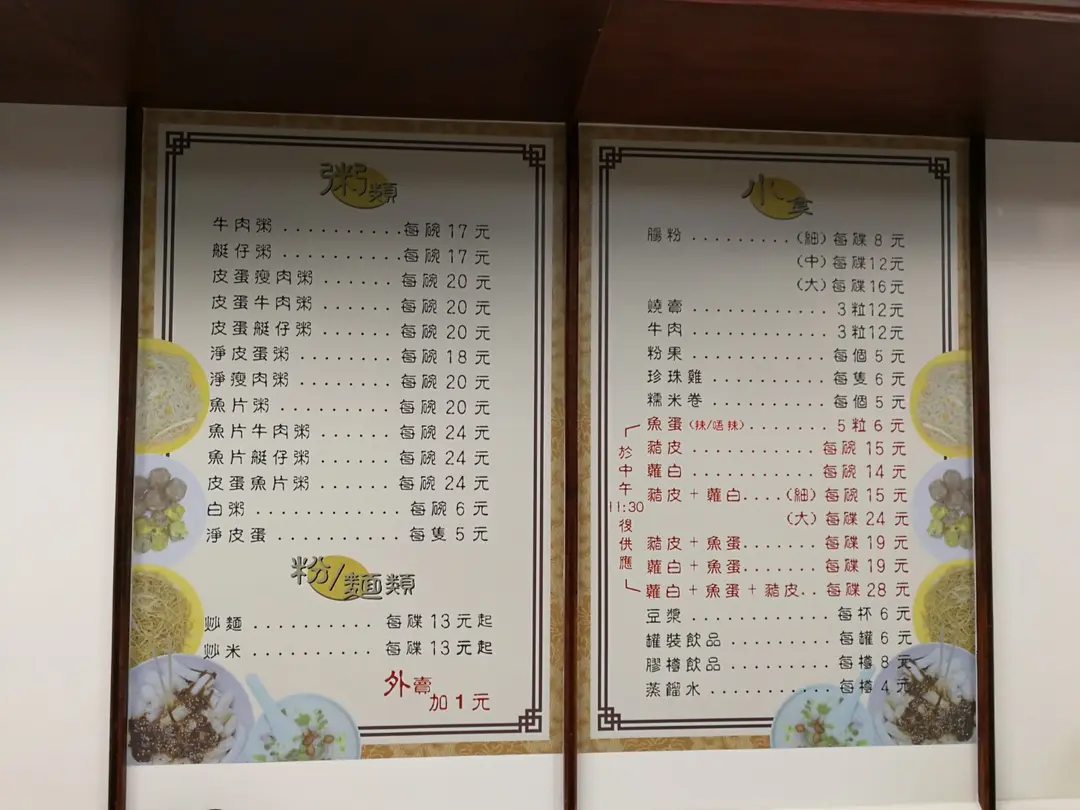 粥類
牛肉粥 . . . . . . . . . . 每碗 17 元
艇仔粥 . . . . . . . . . . 每碗 17 元
皮蛋瘦肉粥 . . . . . . 每碗 20 元
皮蛋牛肉粥 . . . . . . 每碗 20 元
皮蛋艇仔粥 . . . . . . 每碗 20 元
淨皮蛋粥 . . . . . . . . 每碗 18 元
淨瘦肉粥 . . . . . . . . 每碗 20 元
魚片粥 . . . . . . . . . 每碗 20 元
魚片牛肉粥 . . . . . . 每碗 24 元
魚片艇仔粥 . . . . . . 每碗 24 元
皮蛋魚片粥 . . . . . . 每碗 24 元
白粥 . . . . . . . . . . . . 每碗 6 元
淨皮蛋 . . . . . . . . . . 每隻 5 元
粉/麵類
炒麵 . . . . . . . . . . . 每碟 13 元起
炒米 . . . . . . . . . . . 每碟 13 元起
外賣
加 1 元
小食
腸粉 . . . . . . . . . (細) 每碟 8 元
(中) 每碟12元
(大) 每碟16元
燒賣 . . . . . . . . . . . . 3粒12元
牛肉 . . . . . . . . . . . . 3粒12元
粉果 . . . . . . . . . . . . 每個 5 元
珍珠雞 . . . . . . . . . . 每隻 6 元
糯米卷 . . . . . . . . . . 每個 5 元
魚蛋 (辣/唔辣) . . . . . . . . 5 粒 6 元
豬皮 . . . . . . . . . . . . 每碗 15 元
蘿白 . . . . . . . . . . . . 每碗 14 元
豬皮 + 蘿白 . . . . (細) 每碗 15 元
(大) 每碟 24 元
豬皮 + 魚蛋 . . . . . . . 每碟 19 元
蘿白 + 魚蛋 . . . . . . . 每碟 19 元
蘿白 + 魚蛋 + 豬皮 . . 每碟 28 元
於中午11:30後供應
豆漿 . . . . . . . . . . . . 每杯 6 元
罐裝飲品 . . . . . . . . . 每罐 6 元
膠樽飲品 . . . . . . . . . 每樽 8 元
蒸餾水 . . . . . . . . . . . 每樽 4 元